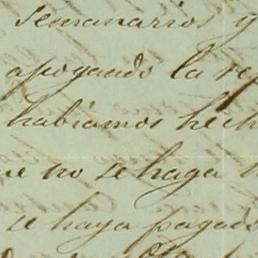 Semanarios y
apoyando la re
habiamos hech
ue no se haga
se haya pagado